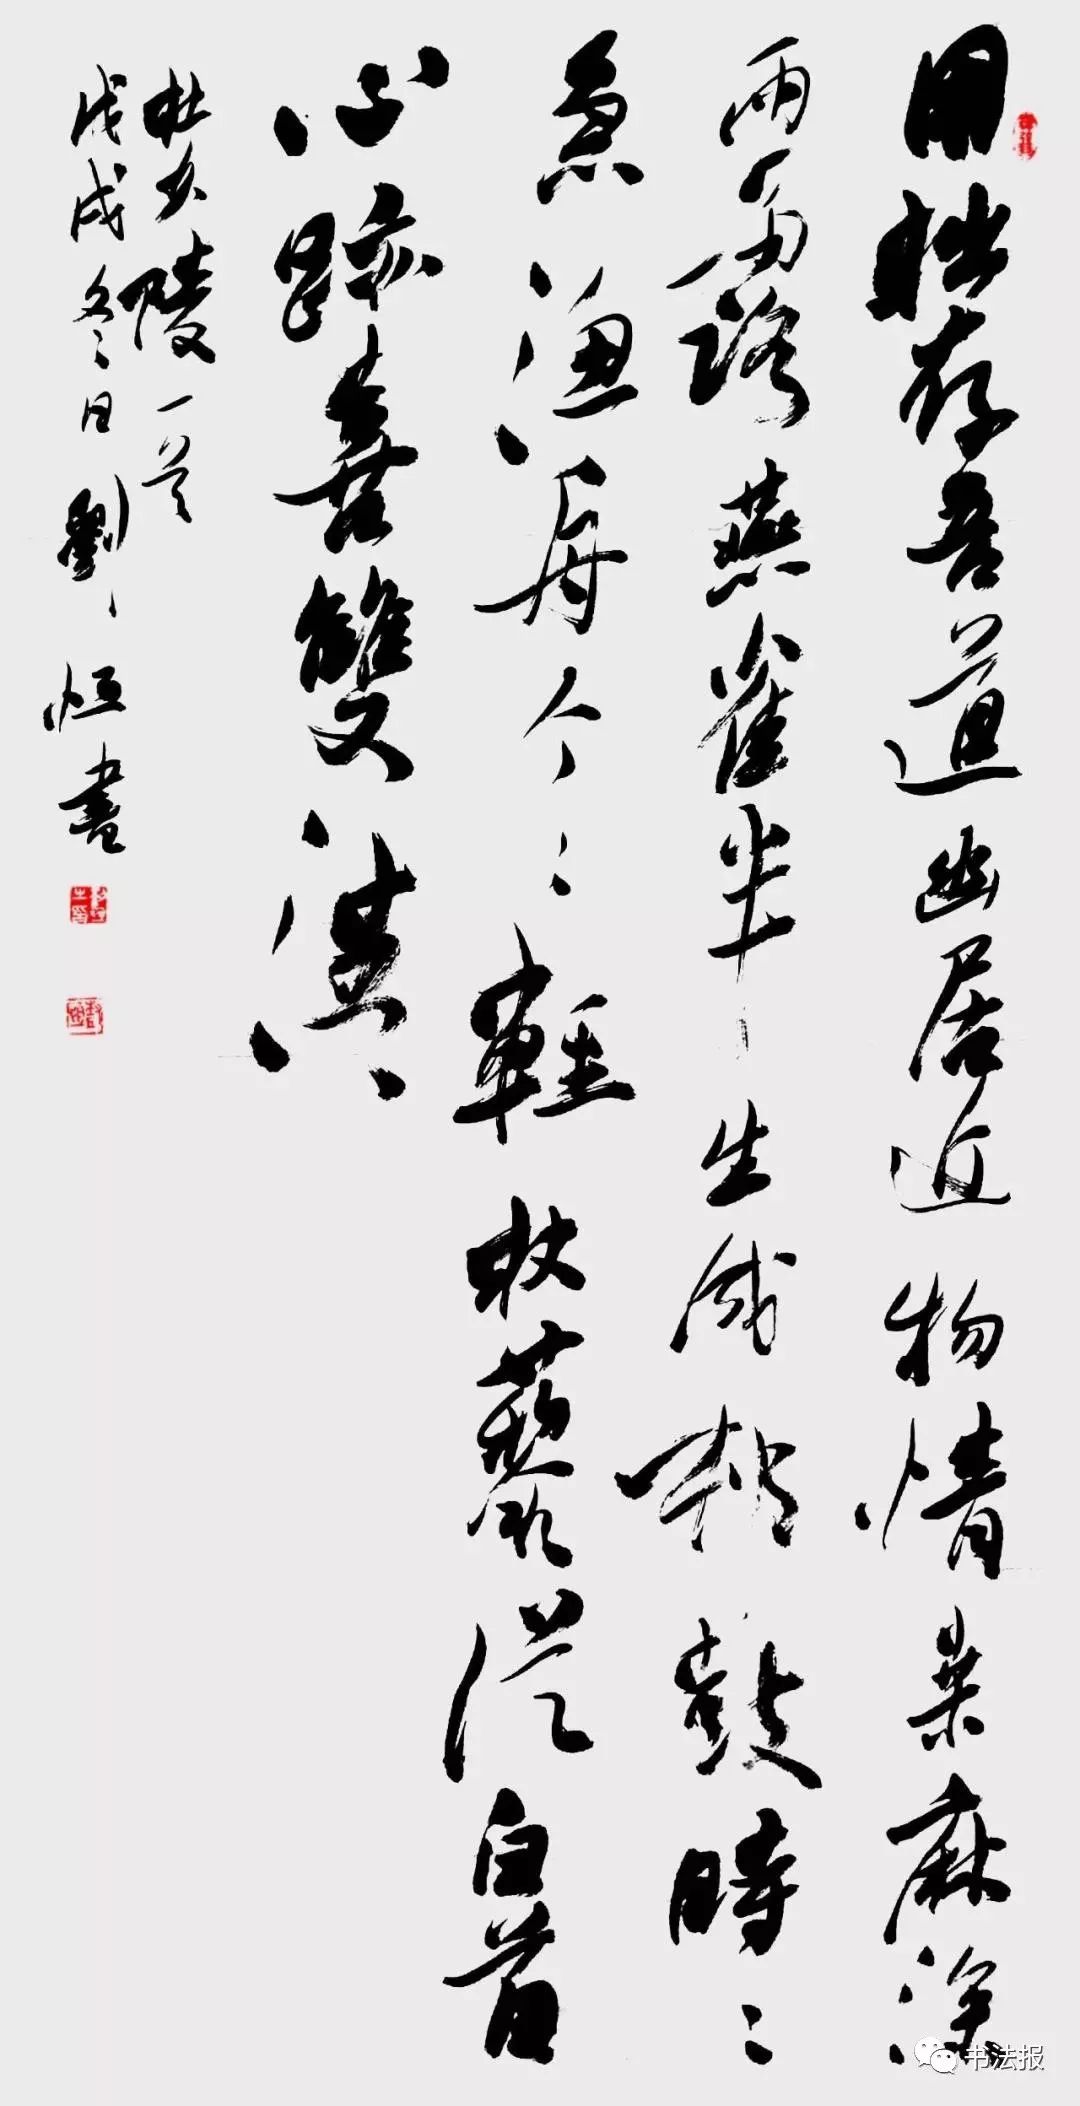 用拙存吾道幽居近物情桑麻深
雨露燕雀半生成村鼓時〻
急漁舟个〻輕杖藜從白首
心跡喜雙清
杜少陵一首
戊戌冬日劉恒書
书法报